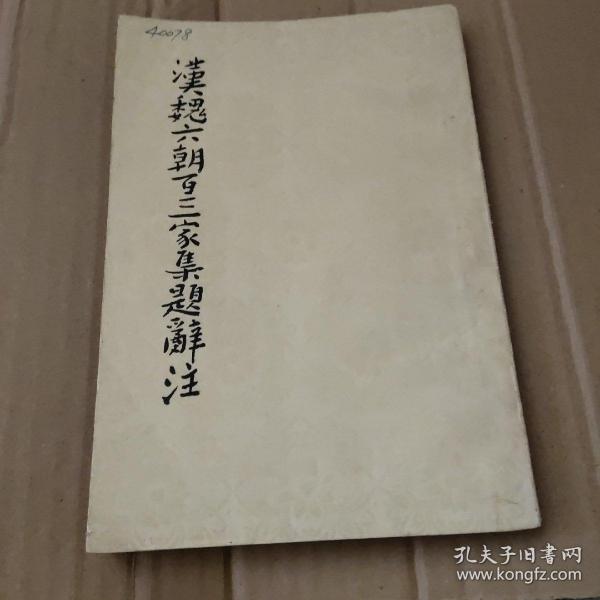 40078
漢魏六朝百三家集題辭注
孔夫子旧書网
www.kongfz.com